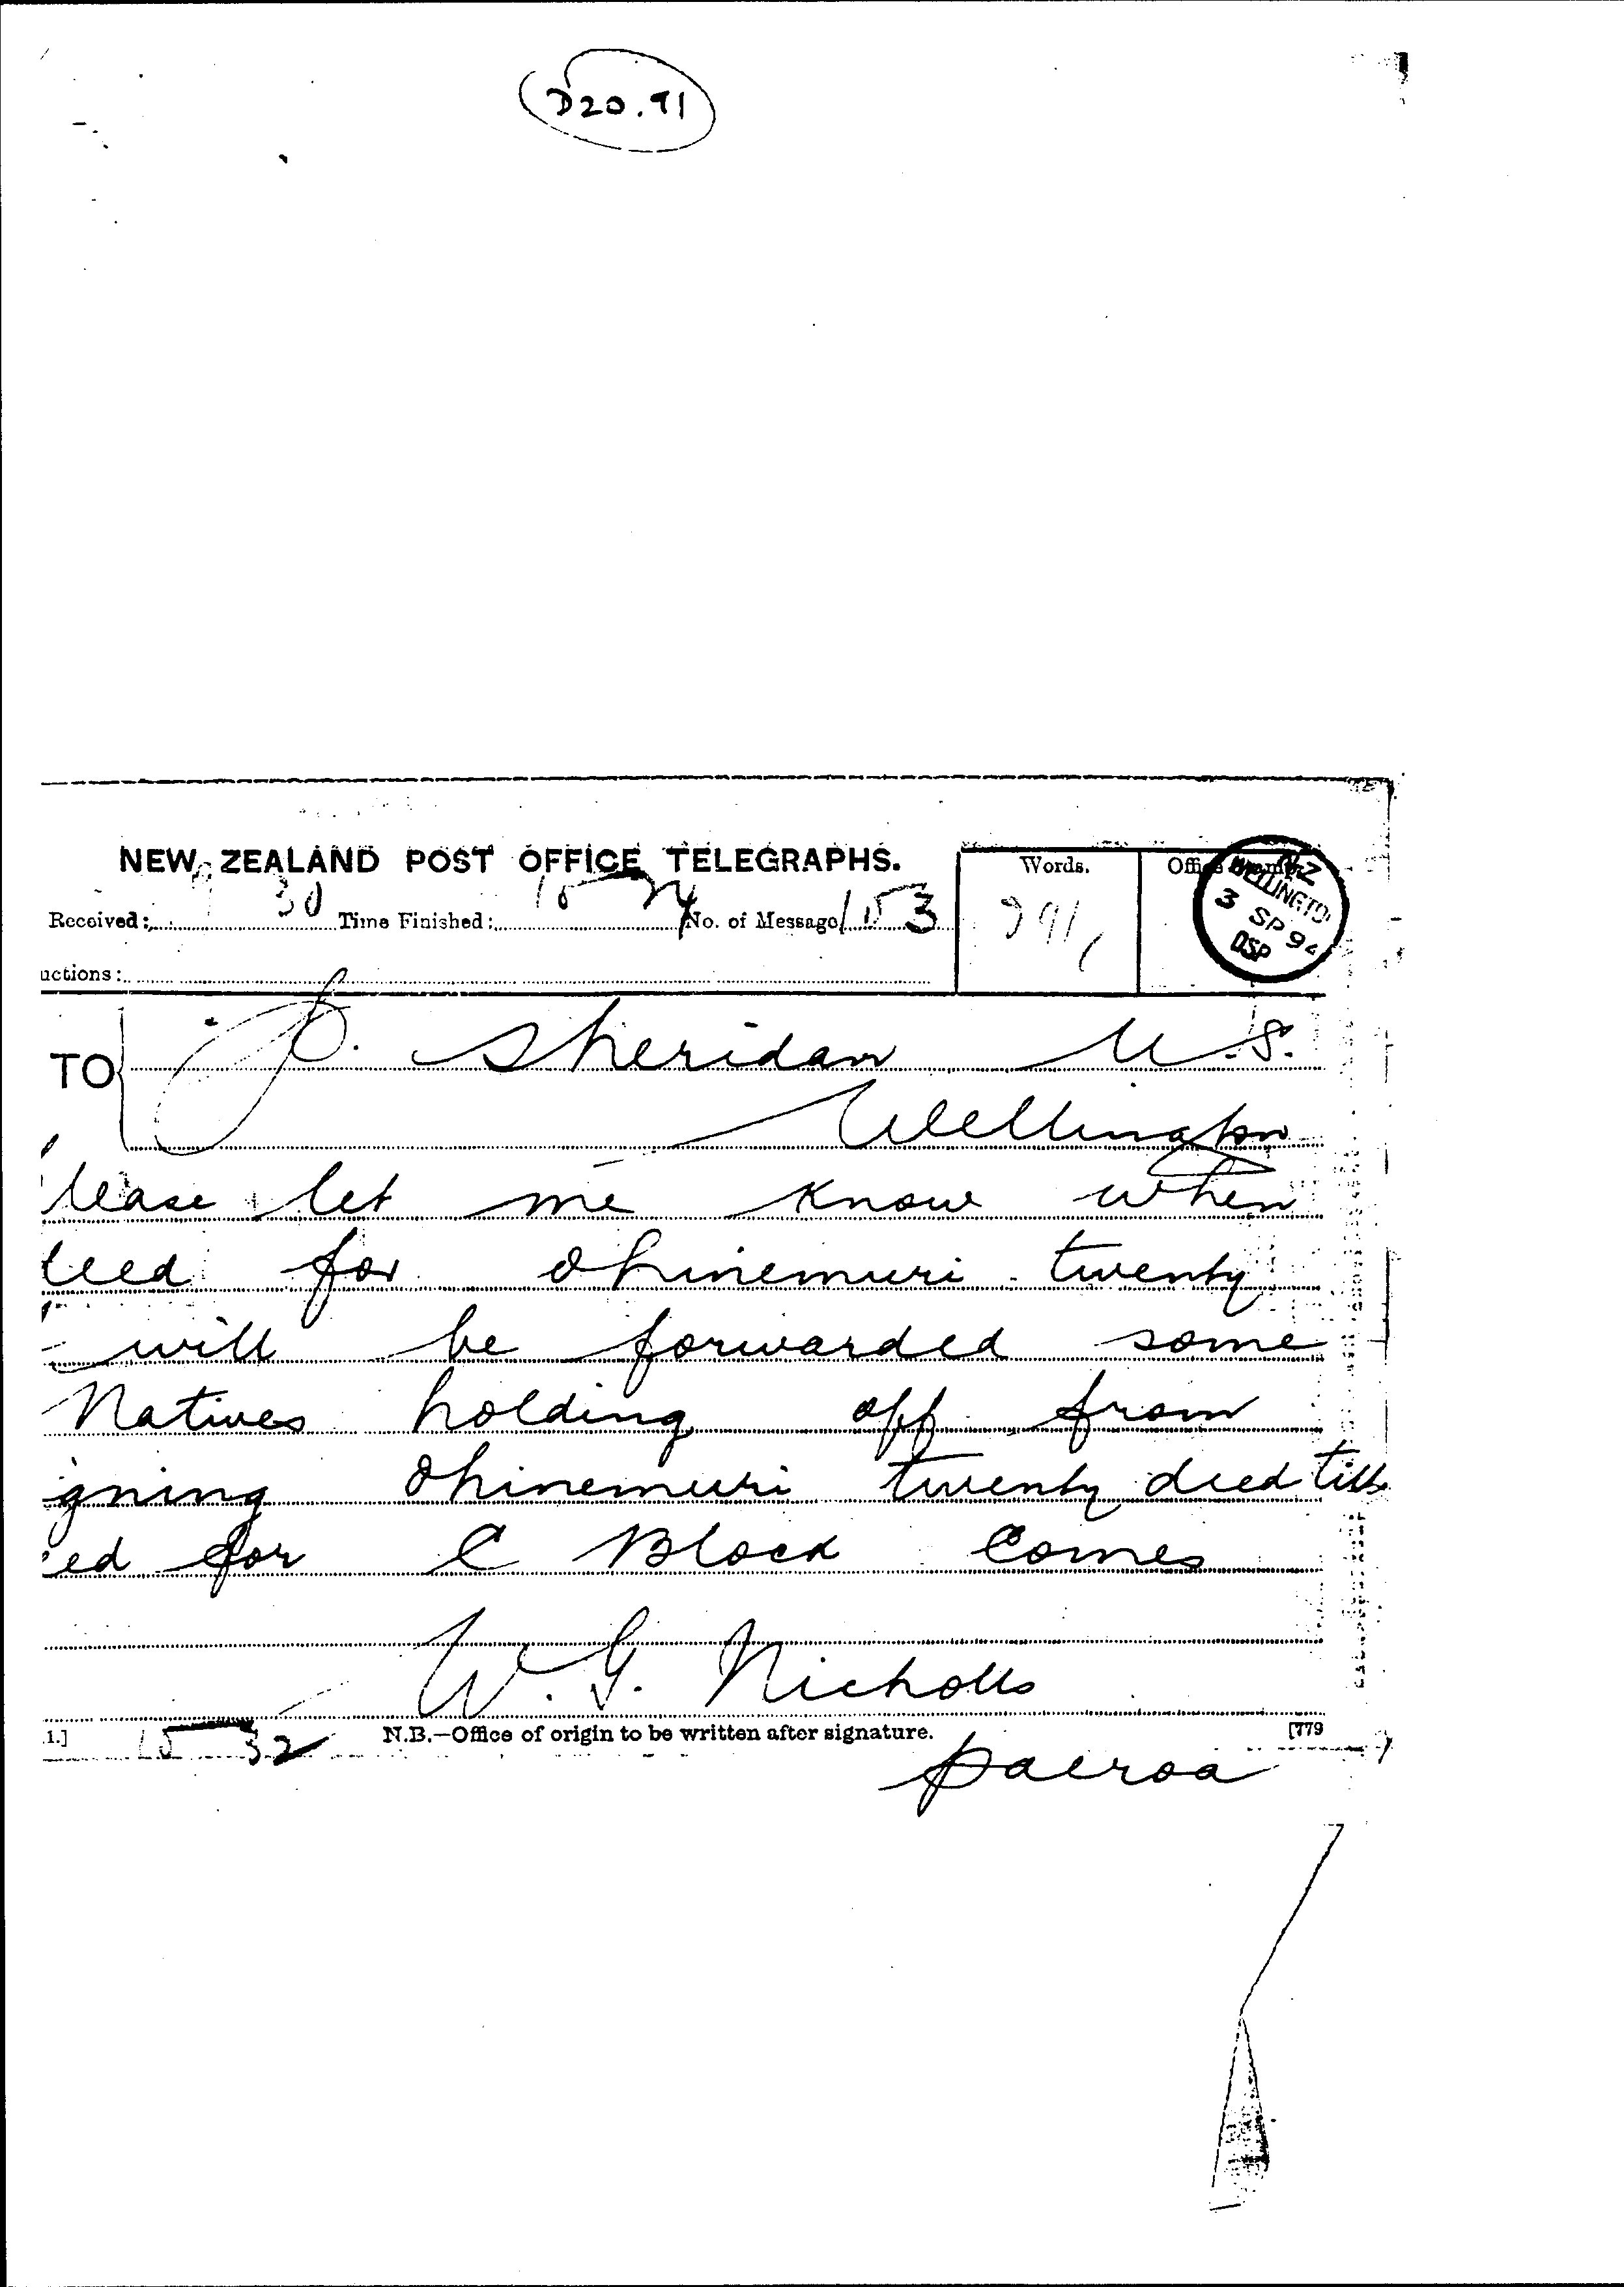 D20.91
NEW ZEALAND POST OFFICE TELEGRAPHS.
Words.
Office
NZ
WELLINGTO
3 SP 94
OSP
Received: 30 Time Finished: No. of Message 153
uctions:
TO P. Sheridan U.S.
Wellington
lease let me know when
eed for Ohinemuri twenty
will be forwarded some
Natives holding off from
gning Ohinemuri twenty deed till
ed for C Block Comes
W. G. Nicholls
1.] 15 32 N.B.—Office of origin to be written after signature. [779
Paeroa